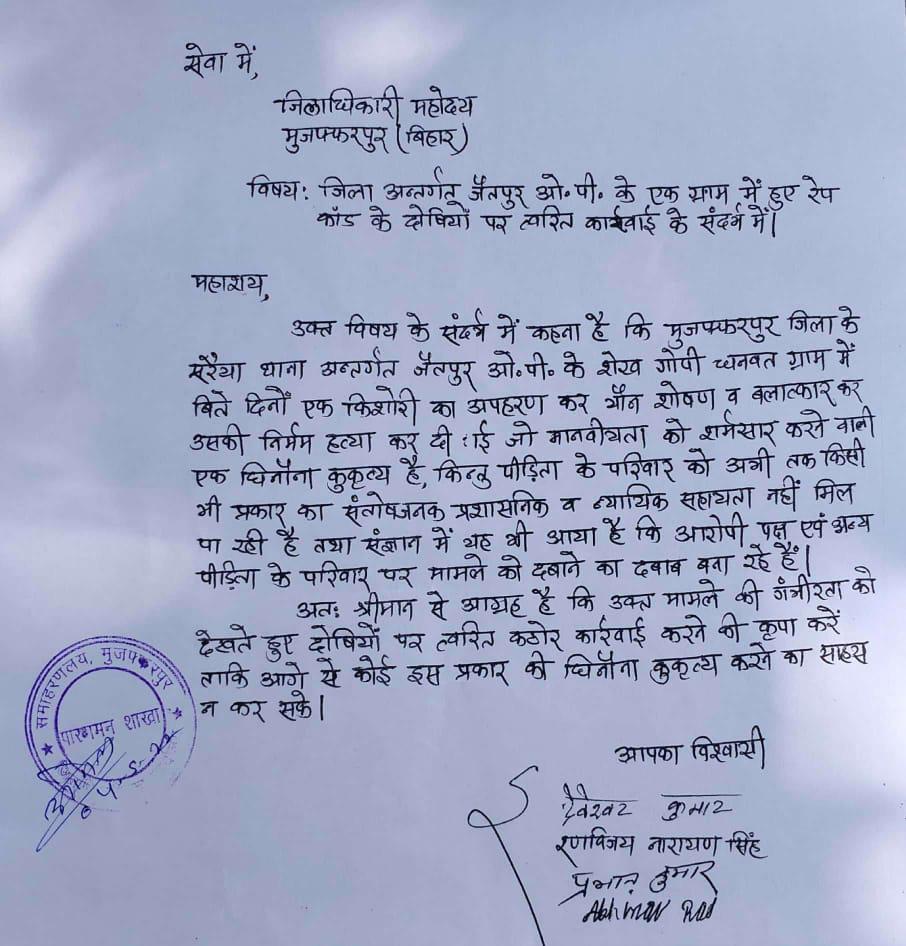 सेवा में,
जिलाधिकारी महोदय
मुजफ्फरपुर (बिहार)
विषय: जिला अन्तर्गत जैतपुर ओ॰पी॰ के एक ग्राम में हुए रेप
कांड के दोषियों पर त्वरित कार्रवाई के संदर्भ में।
महाशय,
उक्त विषय के संदर्भ में कहना है कि मुजफ्फरपुर जिला के
सरैया थाना अन्तर्गत जैतपुर ओ॰पी॰ के शेख गोपी धनवत ग्राम में
बिते दिनों एक किशोरी का अपहरण कर यौन शोषण व बलात्कार कर
उसकी निर्मम हत्या कर दी गई जो मानवीयता को शर्मसार करने वाली
एक घिनौना कुकृत्य है, किन्तु पीड़िता के परिवार को अभी तक किसी
भी प्रकार का संतोषजनक प्रशासनिक व न्यायिक सहायता नहीं मिल
पा रही है तथा संज्ञान में यह भी आया है कि आरोपी पक्ष एवं अन्य
पीड़िता के परिवार पर मामले को दबाने का दबाव बना रहे हैं।
अतः श्रीमान से आग्रह है कि उक्त मामले की गंभीरता को
देखते हुए दोषियों पर त्वरित कठोर कार्रवाई करने की कृपा करें
ताकि आगे से कोई इस प्रकार की घिनौना कुकृत्य करने का साहस
न कर सके।
समाहरणालय, मुजफ्फरपुर
पारगमन शाखा
आपका विश्वासी
देवेश्वर कुमार
रणविजय नारायण सिंह
प्रभात कुमार